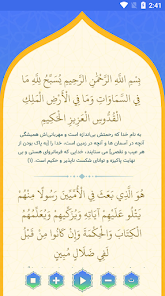 2:41
بِسْمِ اللَّهِ الرَّحْمَٰنِ الرَّحِيمِ يُسَبِّحُ لِلَّهِ مَا
فِي السَّمَاوَاتِ وَمَا فِي الْأَرْضِ الْمَلِكِ
الْقُدُّوسِ الْعَزِيزِ الْحَكِيمِ
به نام خدا که رحمتش بی‌اندازه است و مهربانی‌اش همیشگی
آنچه در آسمان ها و آنچه در زمین است، خدا را [به] پاک بودن از
هر عیب و نقصی می ستایند، خدایی که فرمانروای هستی و بی
نهایت پاکیزه و توانای شکست ناپذیر و حکیم است. (۱)
هُوَ الَّذِي بَعَثَ فِي الْأُمِّيِّينَ رَسُولًا مِنْهُمْ
يَتْلُو عَلَيْهِمْ آيَاتِهِ وَيُزَكِّيهِمْ وَيُعَلِّمُهُمُ
الْكِتَابَ وَالْحِكْمَةَ وَإِنْ كَانُوا مِنْ قَبْلُ
لَفِي ضَلَالٍ مُبِينٍ